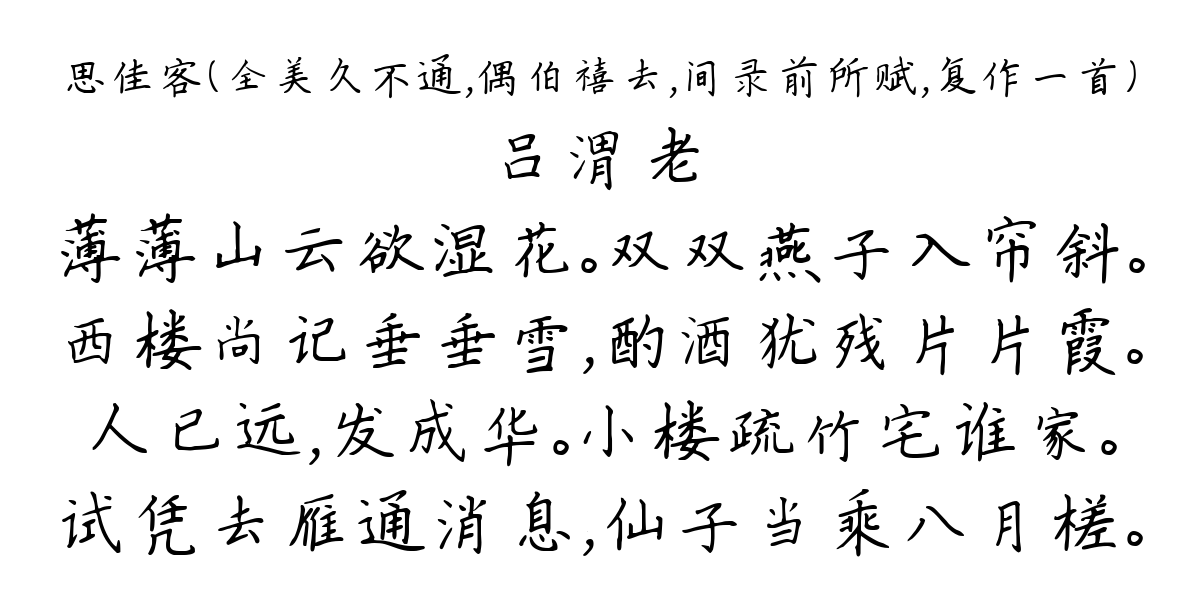 思佳客(全美久不通,偶伯禧去,间录前所赋,复作一首)
吕渭老
薄薄山云欲湿花。双双燕子入帘斜。
西楼尚记垂垂雪,酌酒犹残片片霞。
人已远,发成华。小楼疏竹宅谁家。
试凭去雁通消息,仙子当乘八月槎。